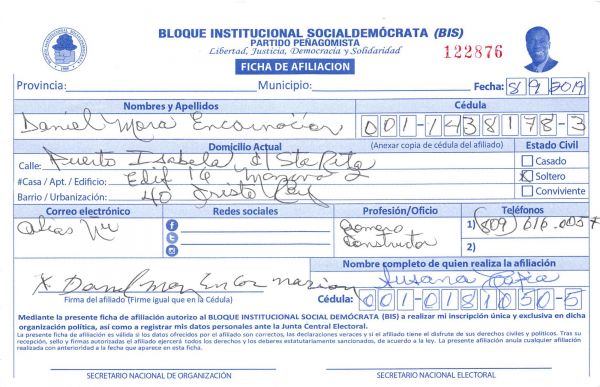 BLOQUE INSTITUCIONAL SOCIALDEMÓCRATA (BIS)
PARTIDO PEÑAGOMISTA
Libertad, Justicia, Democracia y Solidaridad
122876
FICHA DE AFILIACION
Provincia: Municipio: Fecha: 8/9/2019
Nombres y Apellidos Cédula
Daniel Mora Encarnacion 001-1438178-3
Domicilio Actual (Anexar copia de cédula del afiliado) Estado Civil
Calle: Puerto Isabela Sta Rita Casado
#Casa / Apt. / Edificio: Edif 16 Manzana 2 X Soltero
Barrio / Urbanización: 40 Cristo Rey Conviviente
Correo electrónico Redes sociales Profesión/Oficio Teléfonos
Alias Romero 1) (809) 616-005
Constructor 2)
Nombre completo de quien realiza la afiliación
X Daniel Mora Encarnacion Susana
Firma del afiliado (Firme igual que en la Cédula) Cédula: 001-0181050-5
Mediante la presente ficha de afiliación autorizo al BLOQUE INSTITUCIONAL SOCIAL DEMÓCRATA (BIS) a realizar mi inscripción única y exclusiva en dicha
organización política, así como a registrar mis datos personales ante la Junta Central Electoral.
La presente ficha de afiliación es válida si los datos ofrecidos por el afiliado son correctos, las declaraciones veraces y si el afiliado tiene el disfrute de sus derechos civiles y políticos. Tras su
recepción, sello y firmas autorizadas el afiliado ejercerá todos los derechos y los deberes estatutariamente sancionados, de acuerdo a la ley. La presente afiliación anula cualquier afiliación
realizada con anterioridad a la fecha que aparece en esta ficha.
SECRETARIO NACIONAL DE ORGANIZACIÓN SECRETARIO NACIONAL ELECTORAL